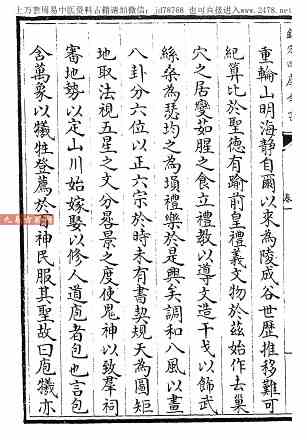 上万套周易中医资料古籍请加微信：jd78768 也可直接进入www.2478.net
重輪山明海靜自爾以來為陵成谷世歷推移難可
紀算比於聖德有踰前皇禮義文物於茲始作去巢
穴之居變茹腥之食立禮教以導文造干戈以飾武
絲桑為瑟均土為塤禮樂於是興矣調和八風以畫
八卦分六位以正六宗於時未有書契規天為圖矩
地取法視五星之文分晷景之度使鬼神以致羣祠
審地勢以定山川始嫁娶以修人道庖者包也言包
含萬象以犧牲登薦於百神民服其聖故曰庖犧亦